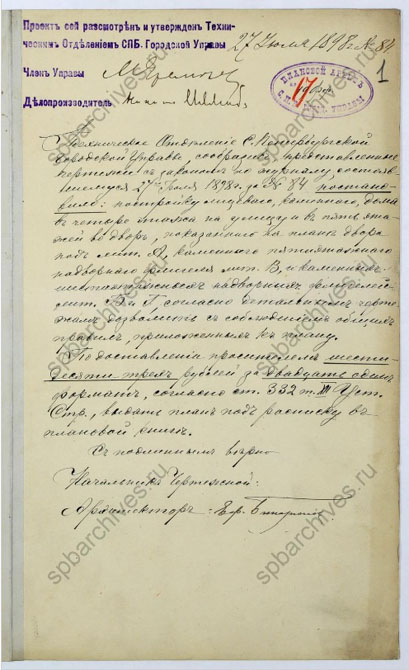 Проектъ сей разсмотрѣнъ и утвержденъ Техни-
ческимъ Отдѣленіемъ СПБ. Городской Управы
27 Іюля 1898 г. № 84
Членъ Управы
1
Дѣлопроизводитель
17
Техническое Отдѣленіе С.Петербургской
Городской Управы, сообразивъ представленные
чертежи съ закономъ по журналу, состояв-
шемуся 27го Іюля 1898 г. за № 84 постано-
вило: постройку лицеваго, каменнаго, дома
въ четыре этажа на улицу и въ пять эта-
жей во дворъ, показаннаго на планѣ двора
подъ лит. А, каменнаго пятиэтажнаго
надворнаго флигеля лит. Б, и каменныхъ
шестиэтажныхъ надворныхъ флигелей
лит. В и Г согласно детальнымъ черте-
жамъ дозволить съ соблюденіемъ общихъ
правилъ, приложенныхъ къ плану.
По доставленіи просителемъ шести-
десяти трехъ рублей за двадцать одинъ
форматъ, согласно ст. 332 т. XII Уст.
Стр., выдать планъ подъ росписку въ
плановой книгѣ.
Съ подлиннымъ вѣрно
Начальникъ Чертежной:
Архитекторъ
spbarchives.ru
spbarchives.ru
spbarchives.ru
spbarchives.ru
spbarchives.ru
spbarchives.ru